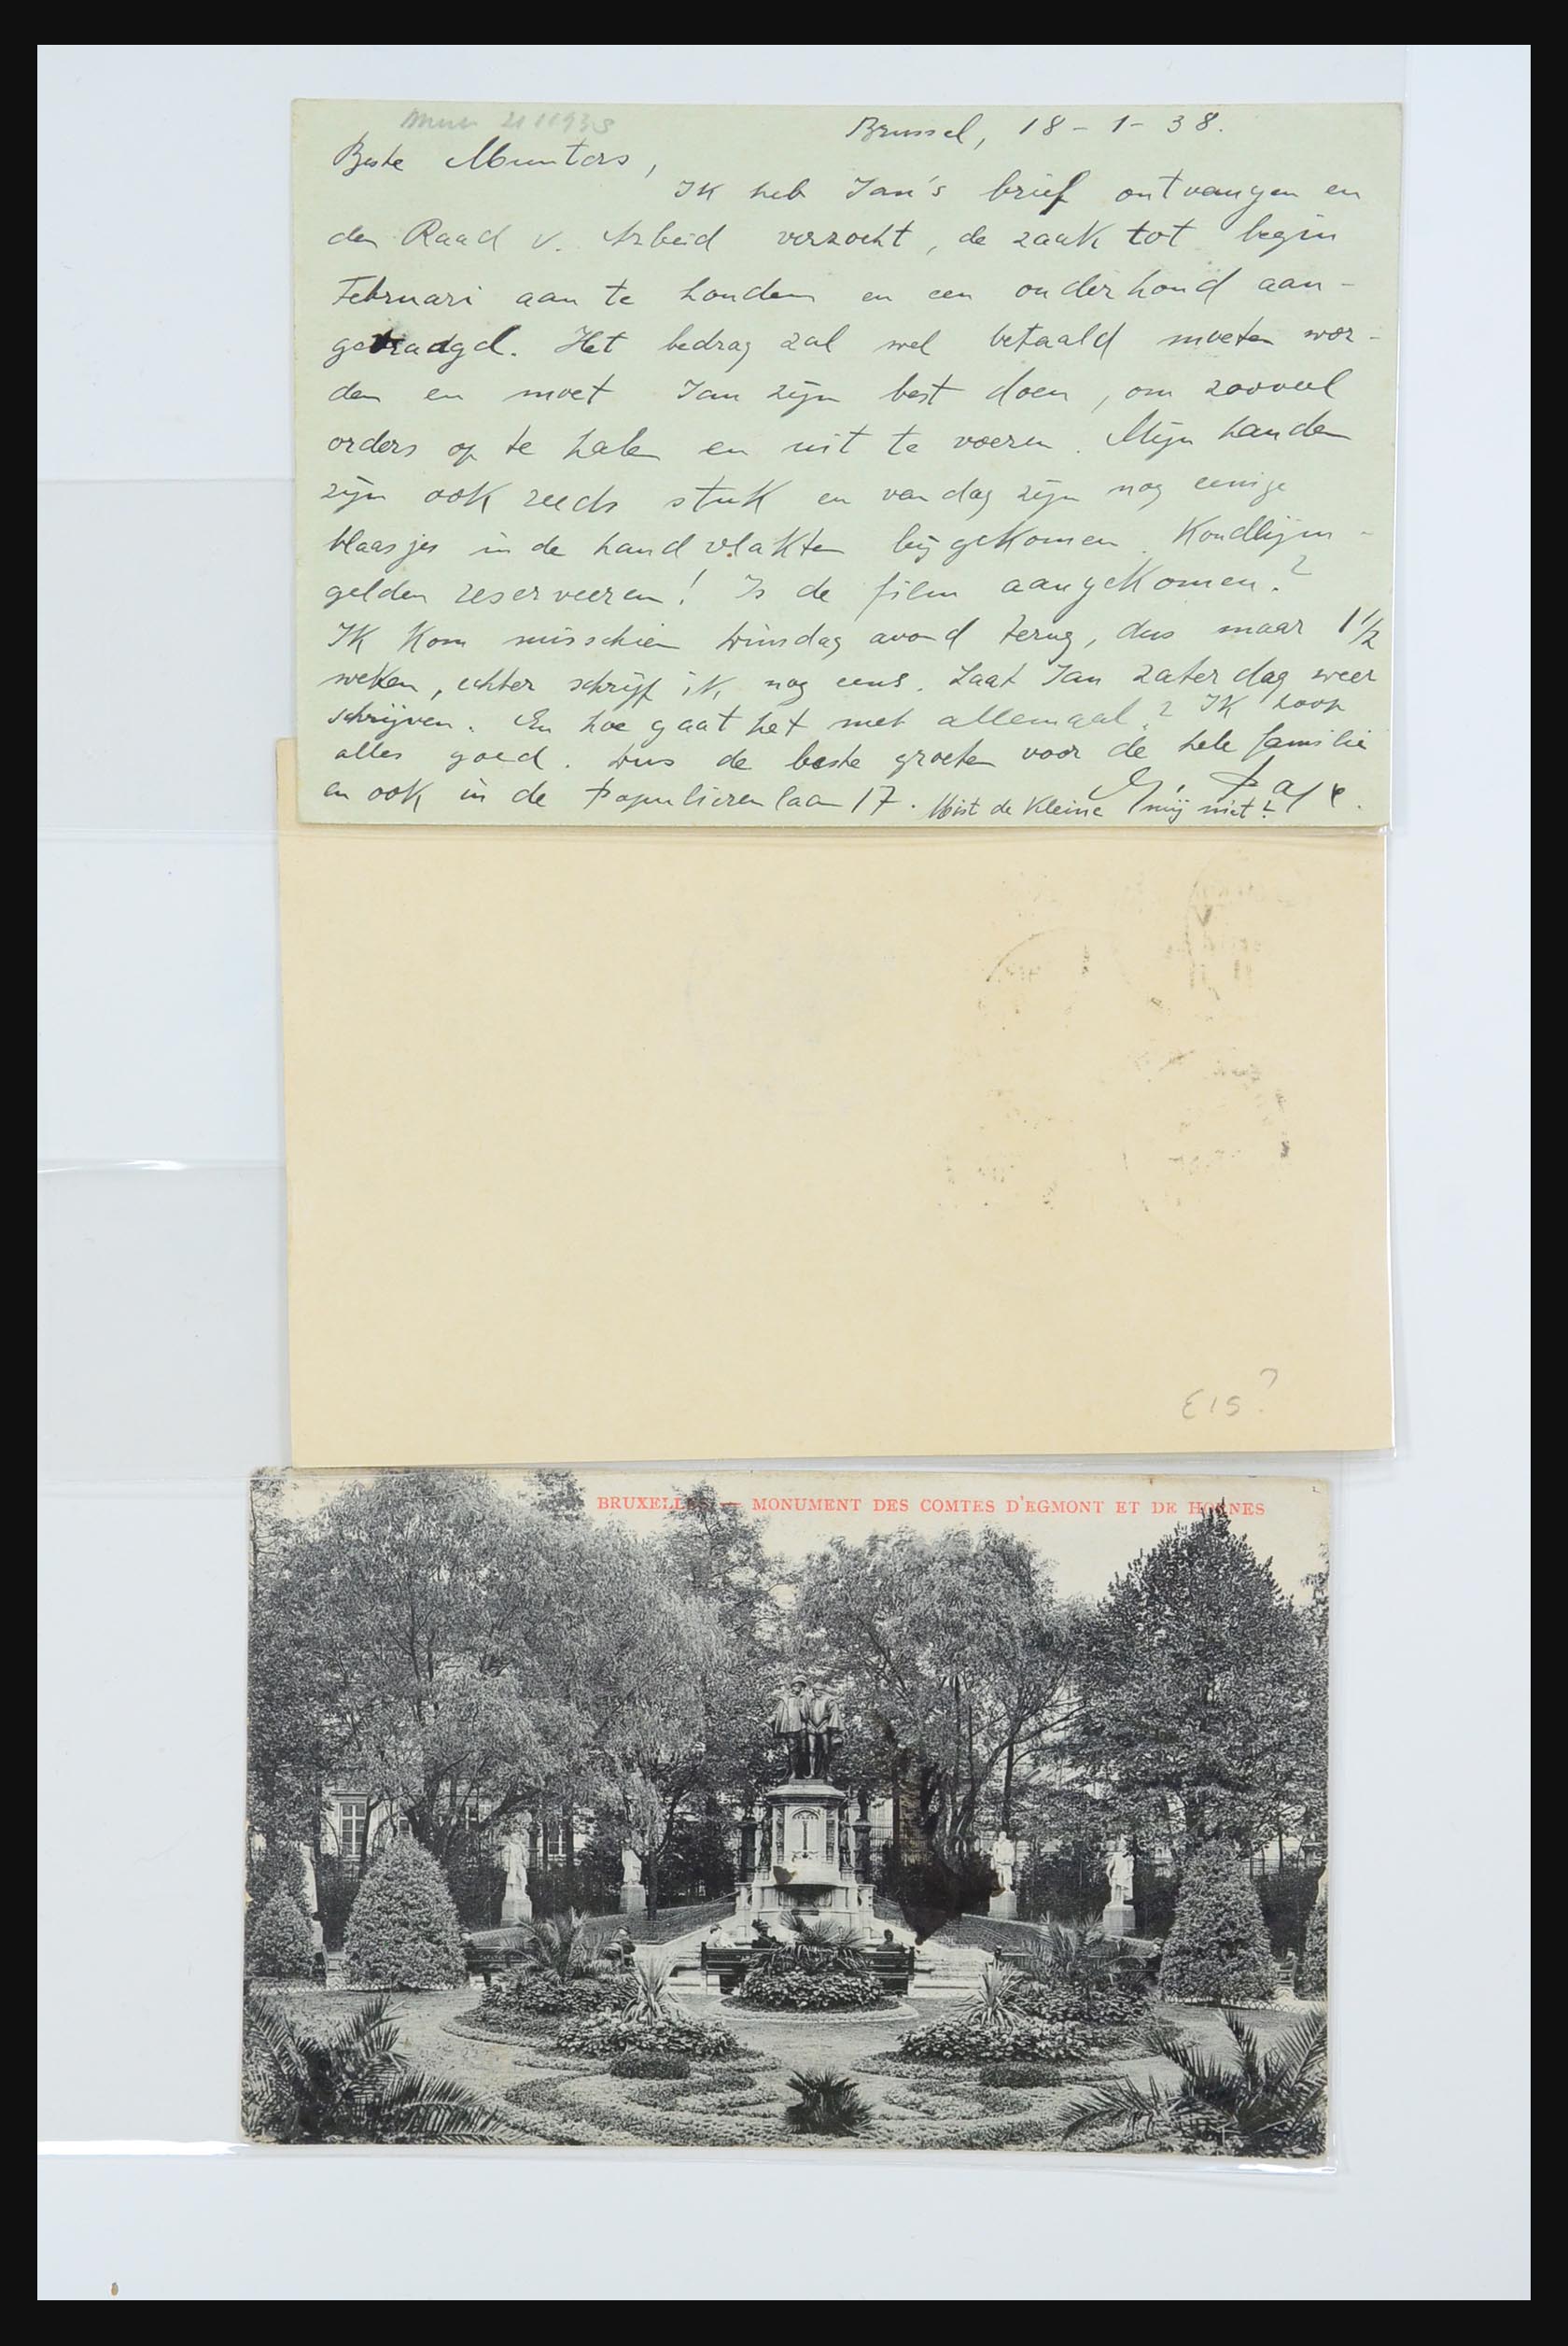 Brussel, 18-1-38.
Beste Munters,
Ik heb Jan's brief ontvangen en
den Raad v. Arbeid verzocht, de zaak tot begin
Februari aan te houden en een onderhoud aan-
gevraagd. Het bedrag zal wel betaald moeten wor-
den en moet Jan zijn best doen, om zooveel
orders op te halen en uit te voeren. Mijn handen
zijn ook reeds stuk en vandaag zijn nog eenige
blaasjes in de handvlakten bijgekomen.
gelden reserveeren! Is de film aangekomen?
Ik kom misschien dinsdag avond terug, dus maar 1 1/2
weken, echter schrijf ik nog eens. Laat Jan zaterdag weer
schrijven. En hoe gaat het met allemaal? Ik hoop
alles goed. Dus de beste groeten voor de hele familie
en ook in de Populierenlaan 17. Mist de kleine mij niet?
E15?
BRUXELLES — MONUMENT DES COMTES D'EGMONT ET DE HORNES